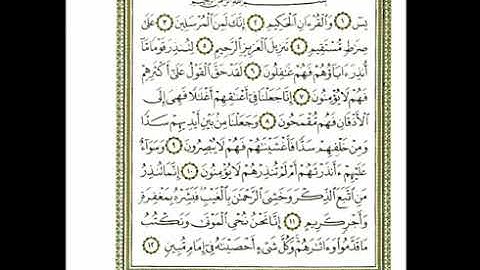 يسٓ ١ وَٱلْقُرْءَانِ ٱلْحَكِيمِ ٢ إِنَّكَ لَمِنَ ٱلْمُرْسَلِينَ ٣ عَلَىٰ
صِرَٰطٍ مُّسْتَقِيمٍ ٤ تَنزِيلَ ٱلْعَزِيزِ ٱلرَّحِيمِ ٥ لِتُنذِرَ قَوْمًا مَّآ
أُنذِرَ ءَابَآؤُهُمْ فَهُمْ غَٰفِلُونَ ٦ لَقَدْ حَقَّ ٱلْقَوْلُ عَلَىٰٓ أَكْثَرِهِمْ
فَهُمْ لَا يُؤْمِنُونَ ٧ إِنَّا جَعَلْنَا فِىٓ أَعْنَٰقِهِمْ أَغْلَٰلًا فَهِىَ إِلَى
ٱلْأَذْقَانِ فَهُم مُّقْمَحُونَ ٨ وَجَعَلْنَا مِنۢ بَيْنِ أَيْدِيهِمْ سَدًّا
وَمِنْ خَلْفِهِمْ سَدًّا فَأَغْشَيْنَٰهُمْ فَهُمْ لَا يُبْصِرُونَ ٩ وَسَوَآءٌ
عَلَيْهِمْ ءَأَنذَرْتَهُمْ أَمْ لَمْ تُنذِرْهُمْ لَا يُؤْمِنُونَ ١٠ إِنَّمَا تُنذِرُ
مَنِ ٱتَّبَعَ ٱلذِّكْرَ وَخَشِىَ ٱلرَّحْمَٰنَ بِٱلْغَيْبِ فَبَشِّرْهُ بِمَغْفِرَةٍ
وَأَجْرٍ كَرِيمٍ ١١ إِنَّا نَحْنُ نُحْىِ ٱلْمَوْتَىٰ وَنَكْتُبُ
مَا قَدَّمُوا۟ وَءَاثَٰرَهُمْ وَكُلَّ شَىْءٍ أَحْصَيْنَٰهُ فِىٓ إِمَامٍ مُّبِينٍ ١٢